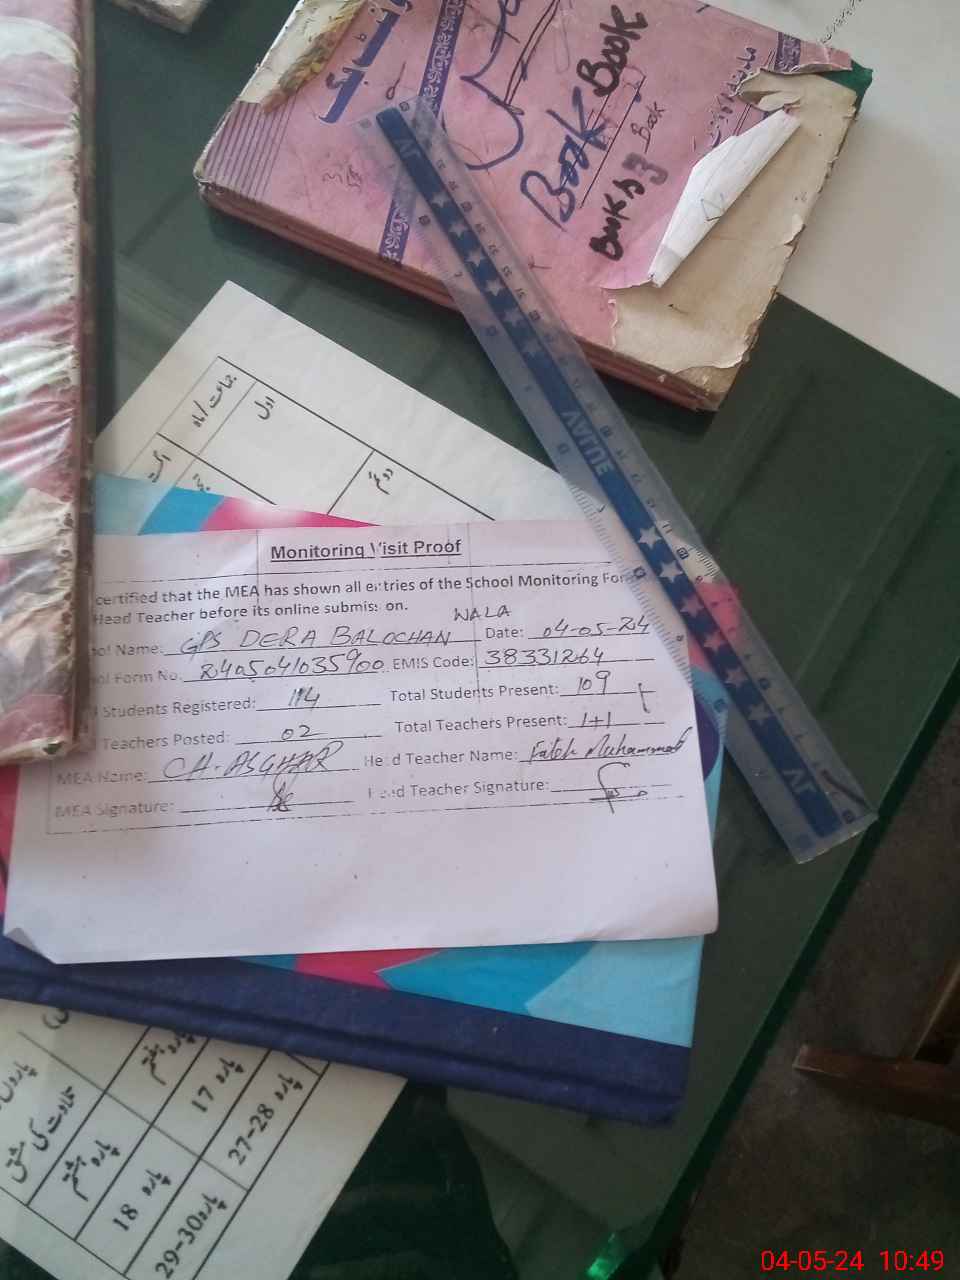 Book Book
Book
Books 3
VALUE
جماعت/ماہ
اول
دوئم
Monitoring Visit Proof
certified that the MEA has shown all entries of the School Monitoring Form
Head Teacher before its online submission.
WALA
ol Name: GPS DERA BALOCHAN Date: 04-05-24
ol Form No. 2405041035900 EMIS Code: 38331264
Students Registered: 114 Total Students Present: 109
Teachers Posted: 02 Total Teachers Present: 1+1
MEA Name: CH. ASGHAR Head Teacher Name: Fateh Muhammad
MEA Signature: Head Teacher Signature:
تلاوت کی مشق
پارہ ہفتم
پارہ ہشتم
پارہ 17
پارہ 18
پارہ 27-28
پارہ 29-30
04-05-24 10:49